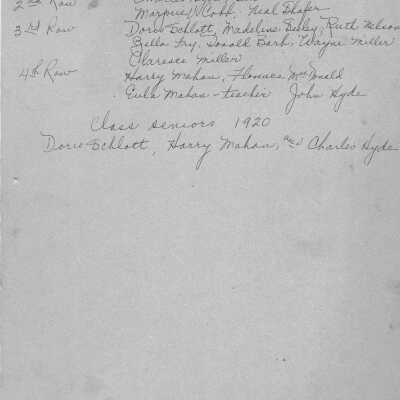 2nd Row
Marquis Cobb, Neal Shafer
3rd Row Doris Schlott, Madeline Seeley, Ruth Nelson
Bella Fry, Donald Barb, Wayne Miller
Clarence Miller
4th Row Harry Mahan, Florence McDonald
Eula Mahan - teacher John Hyde
Class seniors 1920
Doris Schlott, Harry Mahan, and Charles Hyde